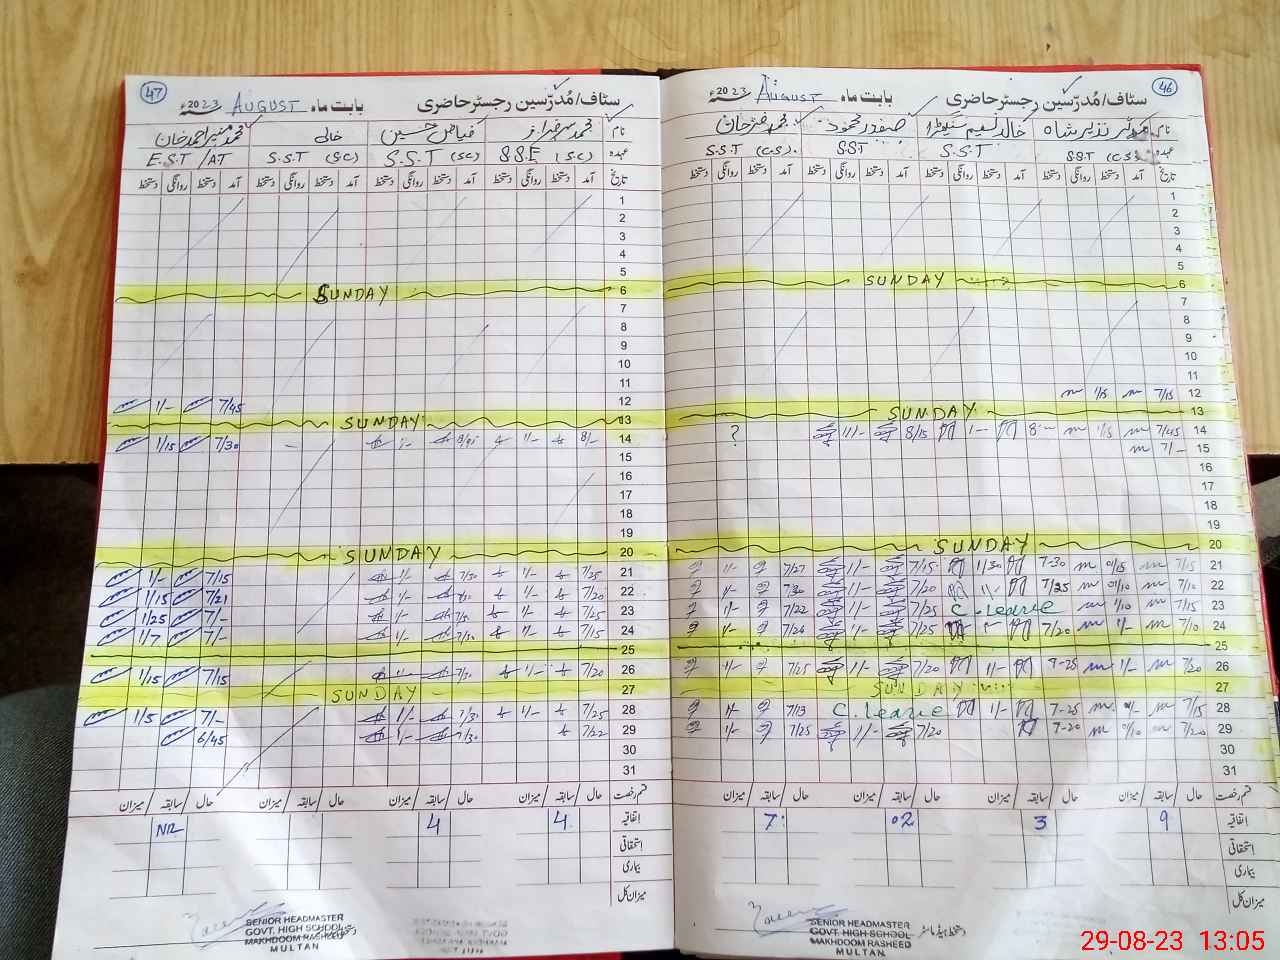 47
سٹاف/مُدرّسین رجسٹر حاضری بابت ماہ AUGUST 2023ء
نام محمد سرفراز فیاض حسین خالی محمد منیر احمد خان
عہدہ S.S.E (SC) S.S.T (SC) S.S.T (SC) E.S.T/AT
تاریخ آمد دستخط روانگی دستخط آمد دستخط روانگی دستخط آمد دستخط روانگی دستخط آمد دستخط روانگی دستخط
1
2
3
4
5
6 SUNDAY
7
8
9
10
11
12 7/45 1/-
13 SUNDAY
14 8/- 1/- 8/45 1/- 7/30 1/15
15
16
17
18
19
20 SUNDAY
21 7/25 1/- 7/30 1/- 7/15 1/-
22 7/20 1/- 1/- 7/21 1/15
23 7/25 1/- 1/- 7/- 1/25
24 7/15 1/- 7/30 1/- 7/- 1/7
25
26 7/20 1/- 7/30 1/- 7/15 1/15
27 SUNDAY
28 7/25 1/- 7/31 1/- 7/- 1/5
29 7/22 7/30 1/- 6/45
30
31
قسم رخصت حال / سابقہ / میزان حال / سابقہ / میزان حال / سابقہ / میزان حال / سابقہ / میزان
اتفاقیہ 4 4 NIL
استحقاقی
بیماری
میزان کل
SENIOR HEADMASTER
GOVT. HIGH SCHOOL
MAKHDOOM RASHEED
MULTAN
46
سٹاف/مُدرّسین رجسٹر حاضری بابت ماہ AUGUST 2023ء
نام نذیر شاہ خالد نسیم صفدر محمود محمد خضر خان
عہدہ S.S.T (C.S) S.S.T SST S.S.T (C.S).
تاریخ آمد دستخط روانگی دستخط آمد دستخط روانگی دستخط آمد دستخط روانگی دستخط آمد دستخط روانگی دستخط
1
2
3
4
5
6 SUNDAY
7
8
9
10
11
12 7/15 1/15
13 SUNDAY
14 7/45 1/5 8-- 1-- 8/15 1/- ?
15 7/-
16
17
18
19
20 SUNDAY
21 7/15 01/15 7-30 1/30 7/15 1/- 7/27 1/-
22 7/10 01/10 7/25 1/- 7/20 1/- 7/30 1/-
23 7/15 1/10 C. Leave 7/25 1/- 7/22 1/-
24 7/10 1/- 7/20 1- 7/25 1/- 7/26 1/-
25
26 7/20 1/- 7-25 1/- 7/20 1/- 7/25 1/-
27 SUNDAY
28 7/15 7-25 1/- C. Leave 7/13 1/-
29 7/20 01/10 7-20 7/20 1/- 7/25 1/-
30
31
قسم رخصت حال / سابقہ / میزان حال / سابقہ / میزان حال / سابقہ / میزان حال / سابقہ / میزان
اتفاقیہ 9 3 02 7
استحقاقی
بیماری
میزان کل
SENIOR HEADMASTER
GOVT. HIGH SCHOOL
MAKHDOOM RASHEED
MULTAN
29-08-23 13:05